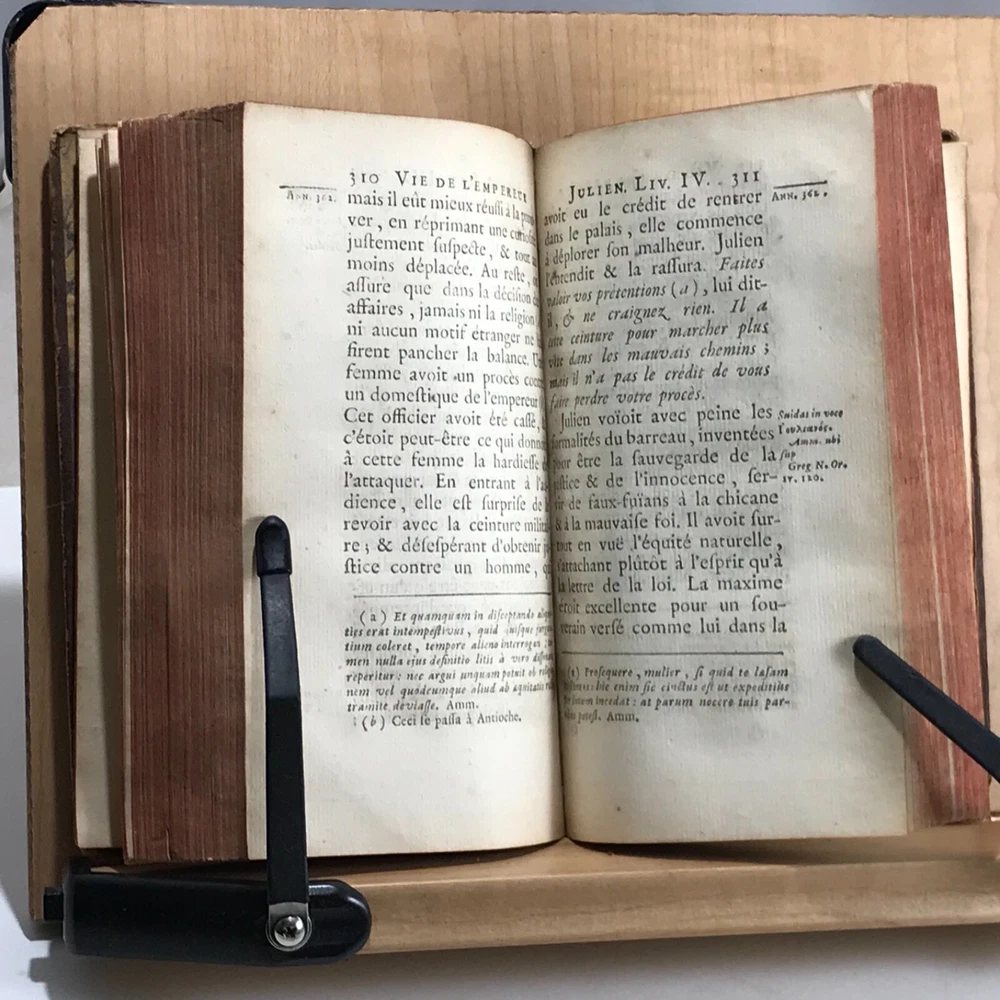 310 VIE DE L'EMPEREUR
ANN. 362.
mais il eût mieux réussi à la
ver, en réprimant une
justement suspecte, & tout
moins déplacée. Au reste,
assure que dans la décision
affaires, jamais ni la religion
ni aucun motif étranger ne
firent pancher la balance.
femme avoit un procès
un domestique de l'empereur
Cet officier avoit été cassé,
c'étoit peut-être ce qui
à cette femme la hardiesse
l'attaquer. En entrant à
dience, elle est surprise de
revoir avec la ceinture
re; & désespérant d'obtenir
stice contre un homme,
(a) Et quamquam in disceptando
ties erat intempestivus, quid quisque
tium coleret, tempore alieno
men nulla ejus definitio litis à vero
reperitur: nec argui unquam potuit ob
nem vel quodcumque aliud ab æquitatis
tramite deviasse. Amm.
(b) Ceci se passa à Antioche.
JULIEN. LIV. IV. 311
ANN. 362.
avoit eu le crédit de rentrer
dans le palais, elle commence
à déplorer son malheur. Julien
l'entendit & la rassura. Faites
valoir vos prétentions (a), lui dit-
il, & ne craignez rien. Il a
cette ceinture pour marcher plus
vîte dans les mauvais chemins;
mais il n'a pas le crédit de vous
faire perdre votre procès.
Julien voïoit avec peine les
formalités du barreau, inventées
pour être la sauvegarde de la
justice & de l'innocence, ser-
vir de faux-fuïans à la chicane
& à la mauvaise foi. Il avoit sur-
tout en vuë l'équité naturelle,
s'attachant plûtôt à l'esprit qu'à
la lettre de la loi. La maxime
étoit excellente pour un sou-
verain versé comme lui dans la
Suidas in voce
Amm. ubi
sup
Greg N. Or.
IV. 120.
(a) Prosequere, mulier, si quid te læsam
hic enim sic cinctus est ut expeditius
per lutum incedat: at parum nocere tuis par-
tibus potest. Amm.